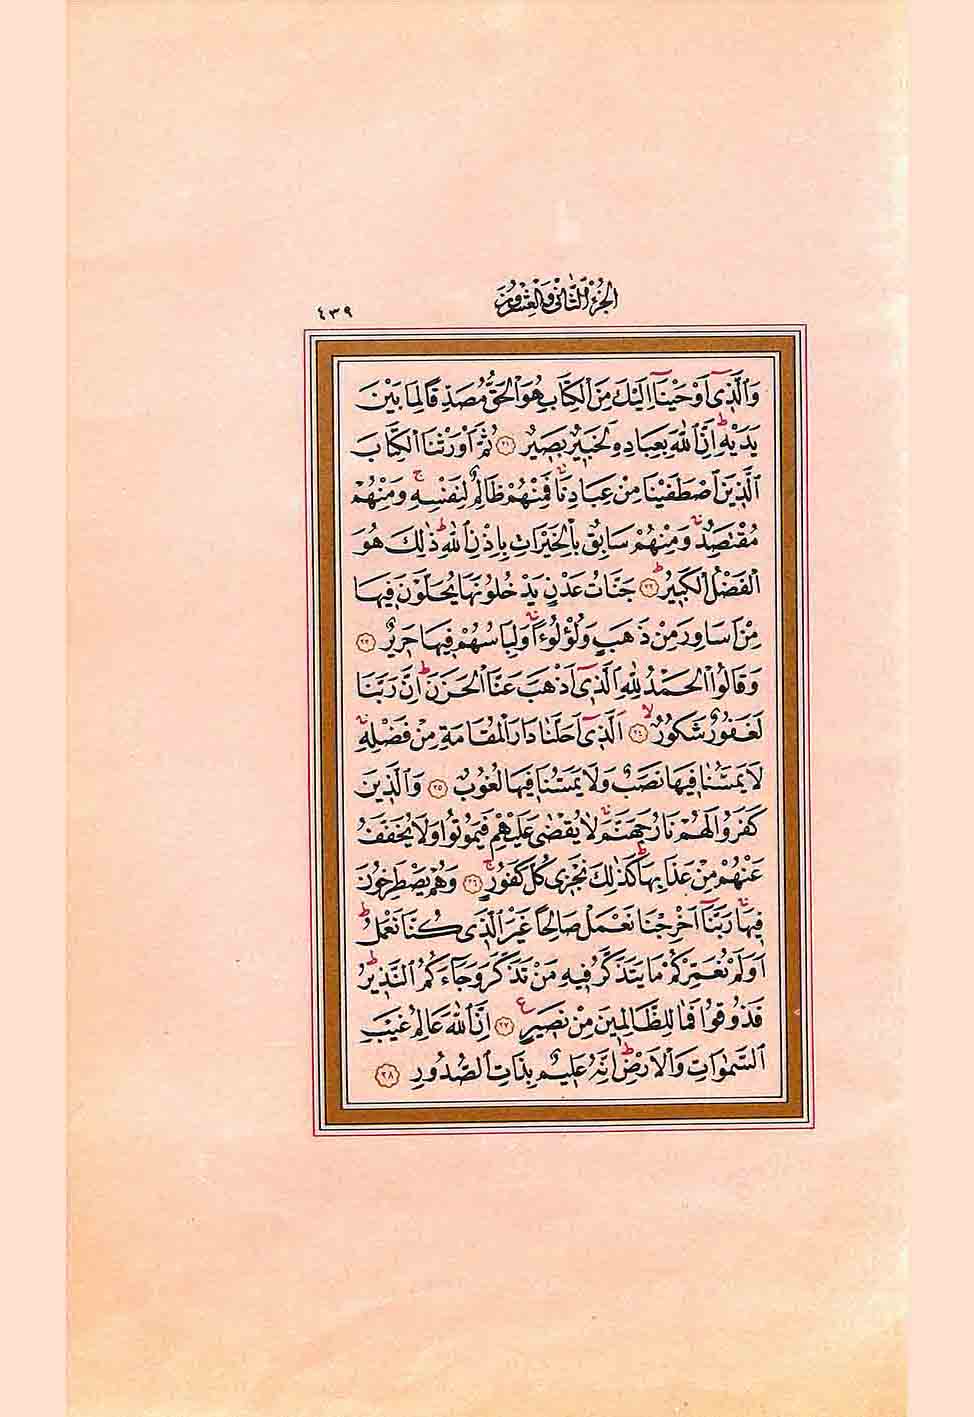 الجزء الثاني والعشرون
٤٣٩
وَالَّذِي أَوْحَيْنَا إِلَيْكَ مِنَ الْكِتَابِ هُوَ الْحَقُّ مُصَدِّقًا لِمَا بَيْنَ
يَدَيْهِ ۗ إِنَّ اللّٰهَ بِعِبَادِهِ لَخَبِيرٌ بَصِيرٌ ﴿٣١﴾ ثُمَّ أَوْرَثْنَا الْكِتَابَ
الَّذِينَ اصْطَفَيْنَا مِنْ عِبَادِنَا فَمِنْهُمْ ظَالِمٌ لِنَفْسِهِ ۚ وَمِنْهُمْ
مُقْتَصِدٌ وَمِنْهُمْ سَابِقٌ بِالْخَيْرَاتِ بِإِذْنِ اللّٰهِ ۗ ذٰلِكَ هُوَ
الْفَضْلُ الْكَبِيرُ ﴿٣٢﴾ جَنَّاتُ عَدْنٍ يَدْخُلُونَهَا يُحَلَّوْنَ فِيهَا
مِنْ أَسَاوِرَ مِنْ ذَهَبٍ وَلُؤْلُؤًا وَلِبَاسُهُمْ فِيهَا حَرِيرٌ ﴿٣٣﴾
وَقَالُوا الْحَمْدُ لِلّٰهِ الَّذِي أَذْهَبَ عَنَّا الْحَزَنَ ۗ إِنَّ رَبَّنَا
لَغَفُورٌ شَكُورٌ ﴿٣٤﴾ الَّذِي أَحَلَّنَا دَارَ الْمُقَامَةِ مِنْ فَضْلِهِ
لَا يَمَسُّنَا فِيهَا نَصَبٌ وَلَا يَمَسُّنَا فِيهَا لُغُوبٌ ﴿٣٥﴾ وَالَّذِينَ
كَفَرُوا لَهُمْ نَارُ جَهَنَّمَ لَا يُقْضٰى عَلَيْهِمْ فَيَمُوتُوا وَلَا يُخَفَّفُ
عَنْهُمْ مِنْ عَذَابِهَا ۗ كَذٰلِكَ نَجْزِي كُلَّ كَفُورٍ ﴿٣٦﴾ وَهُمْ يَصْطَرِخُونَ
فِيهَا رَبَّنَا أَخْرِجْنَا نَعْمَلْ صَالِحًا غَيْرَ الَّذِي كُنَّا نَعْمَلُ
أَوَلَمْ نُعَمِّرْكُمْ مَا يَتَذَكَّرُ فِيهِ مَنْ تَذَكَّرَ وَجَاءَكُمُ النَّذِيرُ
فَذُوقُوا فَمَا لِلظَّالِمِينَ مِنْ نَصِيرٍ ﴿٣٧﴾ إِنَّ اللّٰهَ عَالِمُ غَيْبِ
السَّمٰوَاتِ وَالْأَرْضِ ۗ إِنَّهُ عَلِيمٌ بِذَاتِ الصُّدُورِ ﴿٣٨﴾